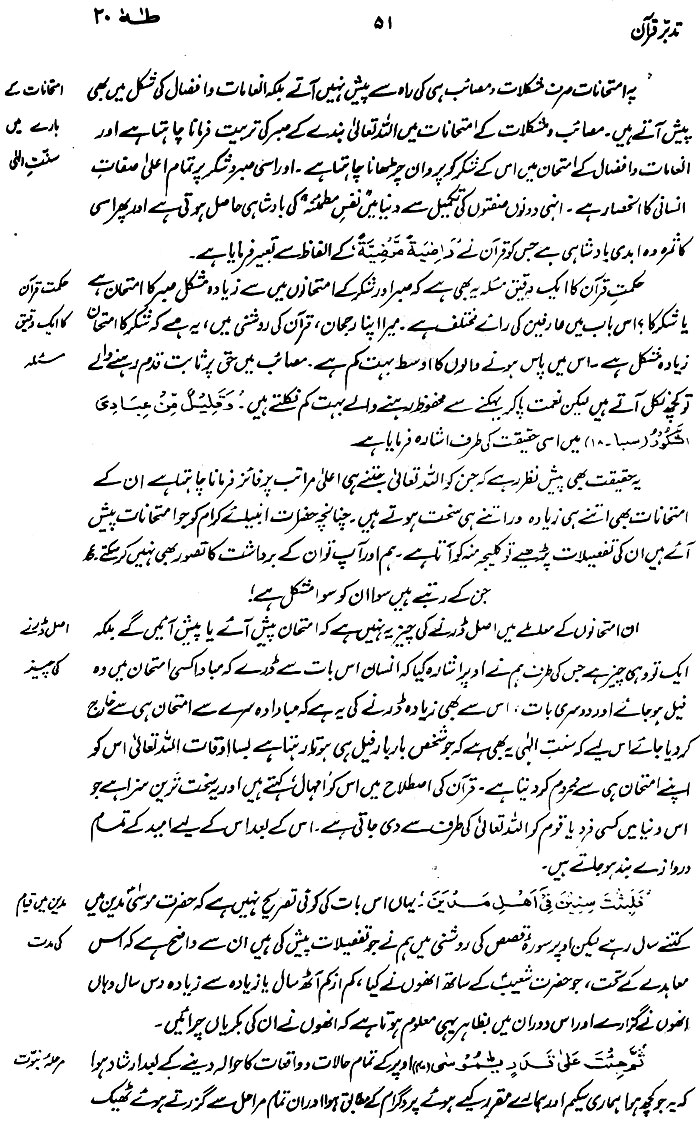 تدبّرِ قرآن ۵۱ طٰهٰ ۲۰
یہ امتحانات صرف مشکلات و مصائب ہی کی راہ سے پیش نہیں آتے بلکہ انعامات و افضال کی شکل میں بھی
امتحانات کے
پیش آتے ہیں۔ مصائب و مشکلات کے امتحانات میں اللہ تعالیٰ بندے کے صبر کی تربیت فرمانا چاہتا ہے اور
بارے میں
انعامات و افضال کے امتحان میں اس کے شکر کو پروان چڑھانا چاہتا ہے۔ اور اسی صبر و شکر پر تمام اعلیٰ صفاتِ
سنتِ الٰہی
انسانی کا انحصار ہے۔ انہی دونوں صفتوں کی تکمیل سے دنیا میں ’نفسِ مطمئنہ‘ کی بادشاہی حاصل ہوتی ہے اور پھر اسی
کا ثمرہ وہ ابدی بادشاہی ہے جس کو قرآن نے ’رَاضِيَةً مَّرْضِيَّةً‘ کے الفاظ سے تعبیر فرمایا ہے۔
حکمتِ قرآن کا ایک دقیق مسئلہ یہ بھی ہے کہ صبر اور شکر کے امتحانوں میں سے زیادہ مشکل صبر کا امتحان ہے
حکمتِ قرآن
یا شکر کا؟ اس باب میں عارفین کی رائے مختلف ہے۔ میرا اپنا رجحان، قرآن کی روشنی میں، یہ ہے کہ شکر کا امتحان
کا ایک دقیق
زیادہ مشکل ہے۔ اس میں پاس ہونے والوں کا اوسط بہت کم ہے۔ مصائب میں حق پر ثابت قدم رہنے والے
مسئلہ
تو کچھ نکل آتے ہیں لیکن نعمت پا کر بہکنے سے محفوظ رہنے والے بہت کم نکلتے ہیں۔ ’وَقَلِيلٌ مِّنْ عِبَادِيَ
الشَّكُورُ‘ (سبا۔ ۱۸) میں اسی حقیقت کی طرف اشارہ فرمایا ہے۔
یہ حقیقت بھی پیش نظر رہے کہ جن کو اللہ تعالیٰ جتنے ہی اعلیٰ مراتب پر فائز فرمانا چاہتا ہے ان کے
امتحانات بھی اتنے ہی زیادہ اور اتنے ہی سخت ہوتے ہیں۔ چنانچہ حضرات انبیائے کرام کو جو امتحانات پیش
آئے ہیں ان کی تفصیلات پڑھیے تو کلیجہ منہ کو آتا ہے۔ ہم اور آپ تو ان کے برداشت کا تصور بھی نہیں کر سکتے۔ ع
جن کے رتبے ہیں سوا ان کو سوا مشکل ہے!
ان امتحانوں کے معاملے میں اصل ڈرنے کی چیز یہ نہیں ہے کہ امتحان پیش آئے یا پیش آئیں گے بلکہ
اصل ڈرنے
ایک تو وہی چیز ہے جس کی طرف ہم نے اوپر اشارہ کیا کہ انسان اس بات سے ڈرے کہ مبادا کسی امتحان میں وہ
کی چیز
فیل ہو جائے اور دوسری بات، اس سے بھی زیادہ ڈرنے کی یہ ہے کہ مبادا وہ سرے سے امتحان ہی سے خارج
کر دیا جائے اس لیے کہ سنتِ الٰہی یہ بھی ہے کہ جو شخص بار بار فیل ہی ہوتا رہتا ہے بسا اوقات اللہ تعالیٰ اس کو
اپنے امتحان ہی سے محروم کر دیتا ہے۔ قرآن کی اصطلاح میں اس کو ’امہال‘ کہتے ہیں اور یہ سخت ترین سزا ہے جو
اس دنیا میں کسی فرد یا قوم کو اللہ تعالیٰ کی طرف سے دی جاتی ہے۔ اس کے بعد اس کے لیے امید کے تمام
دروازے بند ہو جاتے ہیں۔
’فَلَبِثْتَ سِنِينَ فِي أَهْلِ مَدْيَنَ‘: یہاں اس بات کی کوئی تصریح نہیں ہے کہ حضرت موسٰیؑ مدین میں
مدین میں قیام
کتنے سال رہے لیکن اوپر سورۂ قصص کی روشنی میں ہم نے جو تفصیلات پیش کی ہیں ان سے واضح ہے کہ اس
کی مدت
معاہدے کے تحت، جو حضرت شعیبؑ کے ساتھ انھوں نے کیا، کم از کم آٹھ سال یا زیادہ سے زیادہ دس سال وہاں
انھوں نے گزارے اور اس دوران میں بظاہر یہی معلوم ہوتا ہے کہ انھوں نے ان کی بکریاں چرائیں۔
’ثُمَّ جِئْتَ عَلَىٰ قَدَرٍ يَّٰمُوسَىٰ‘ (۴۰) اوپر کے تمام حالات و واقعات کا حوالہ دینے کے بعد ارشاد ہوا
مرحلۂ نبوت
کہ یہ جو کچھ ہوا ہماری سکیم اور ہمارے مقرر کیے ہوئے پروگرام کے مطابق ہوا اور ان تمام مراحل سے گزرتے ہوئے ٹھیک